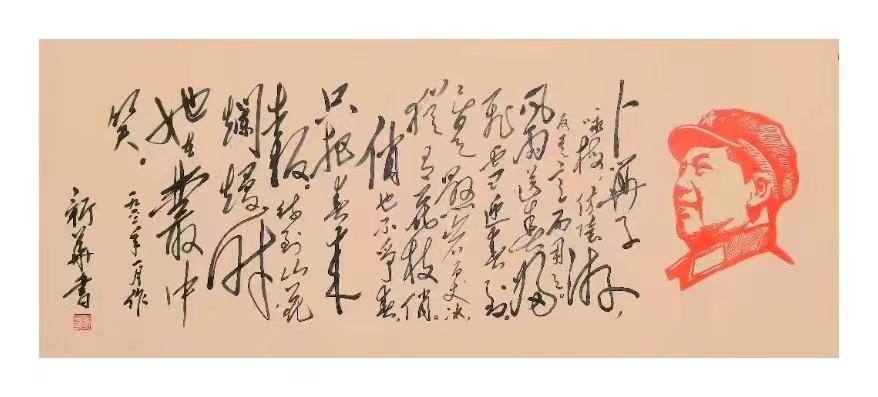 卜算子
咏梅 读陆游，
反其意而用之。
风雨送春归
飞雪迎春到。
已是悬岩百丈冰，
犹有花枝俏。
俏也不争春，
只把春来
报。待到山花
烂熳时
她在丛中
笑。
年 月作
新华书